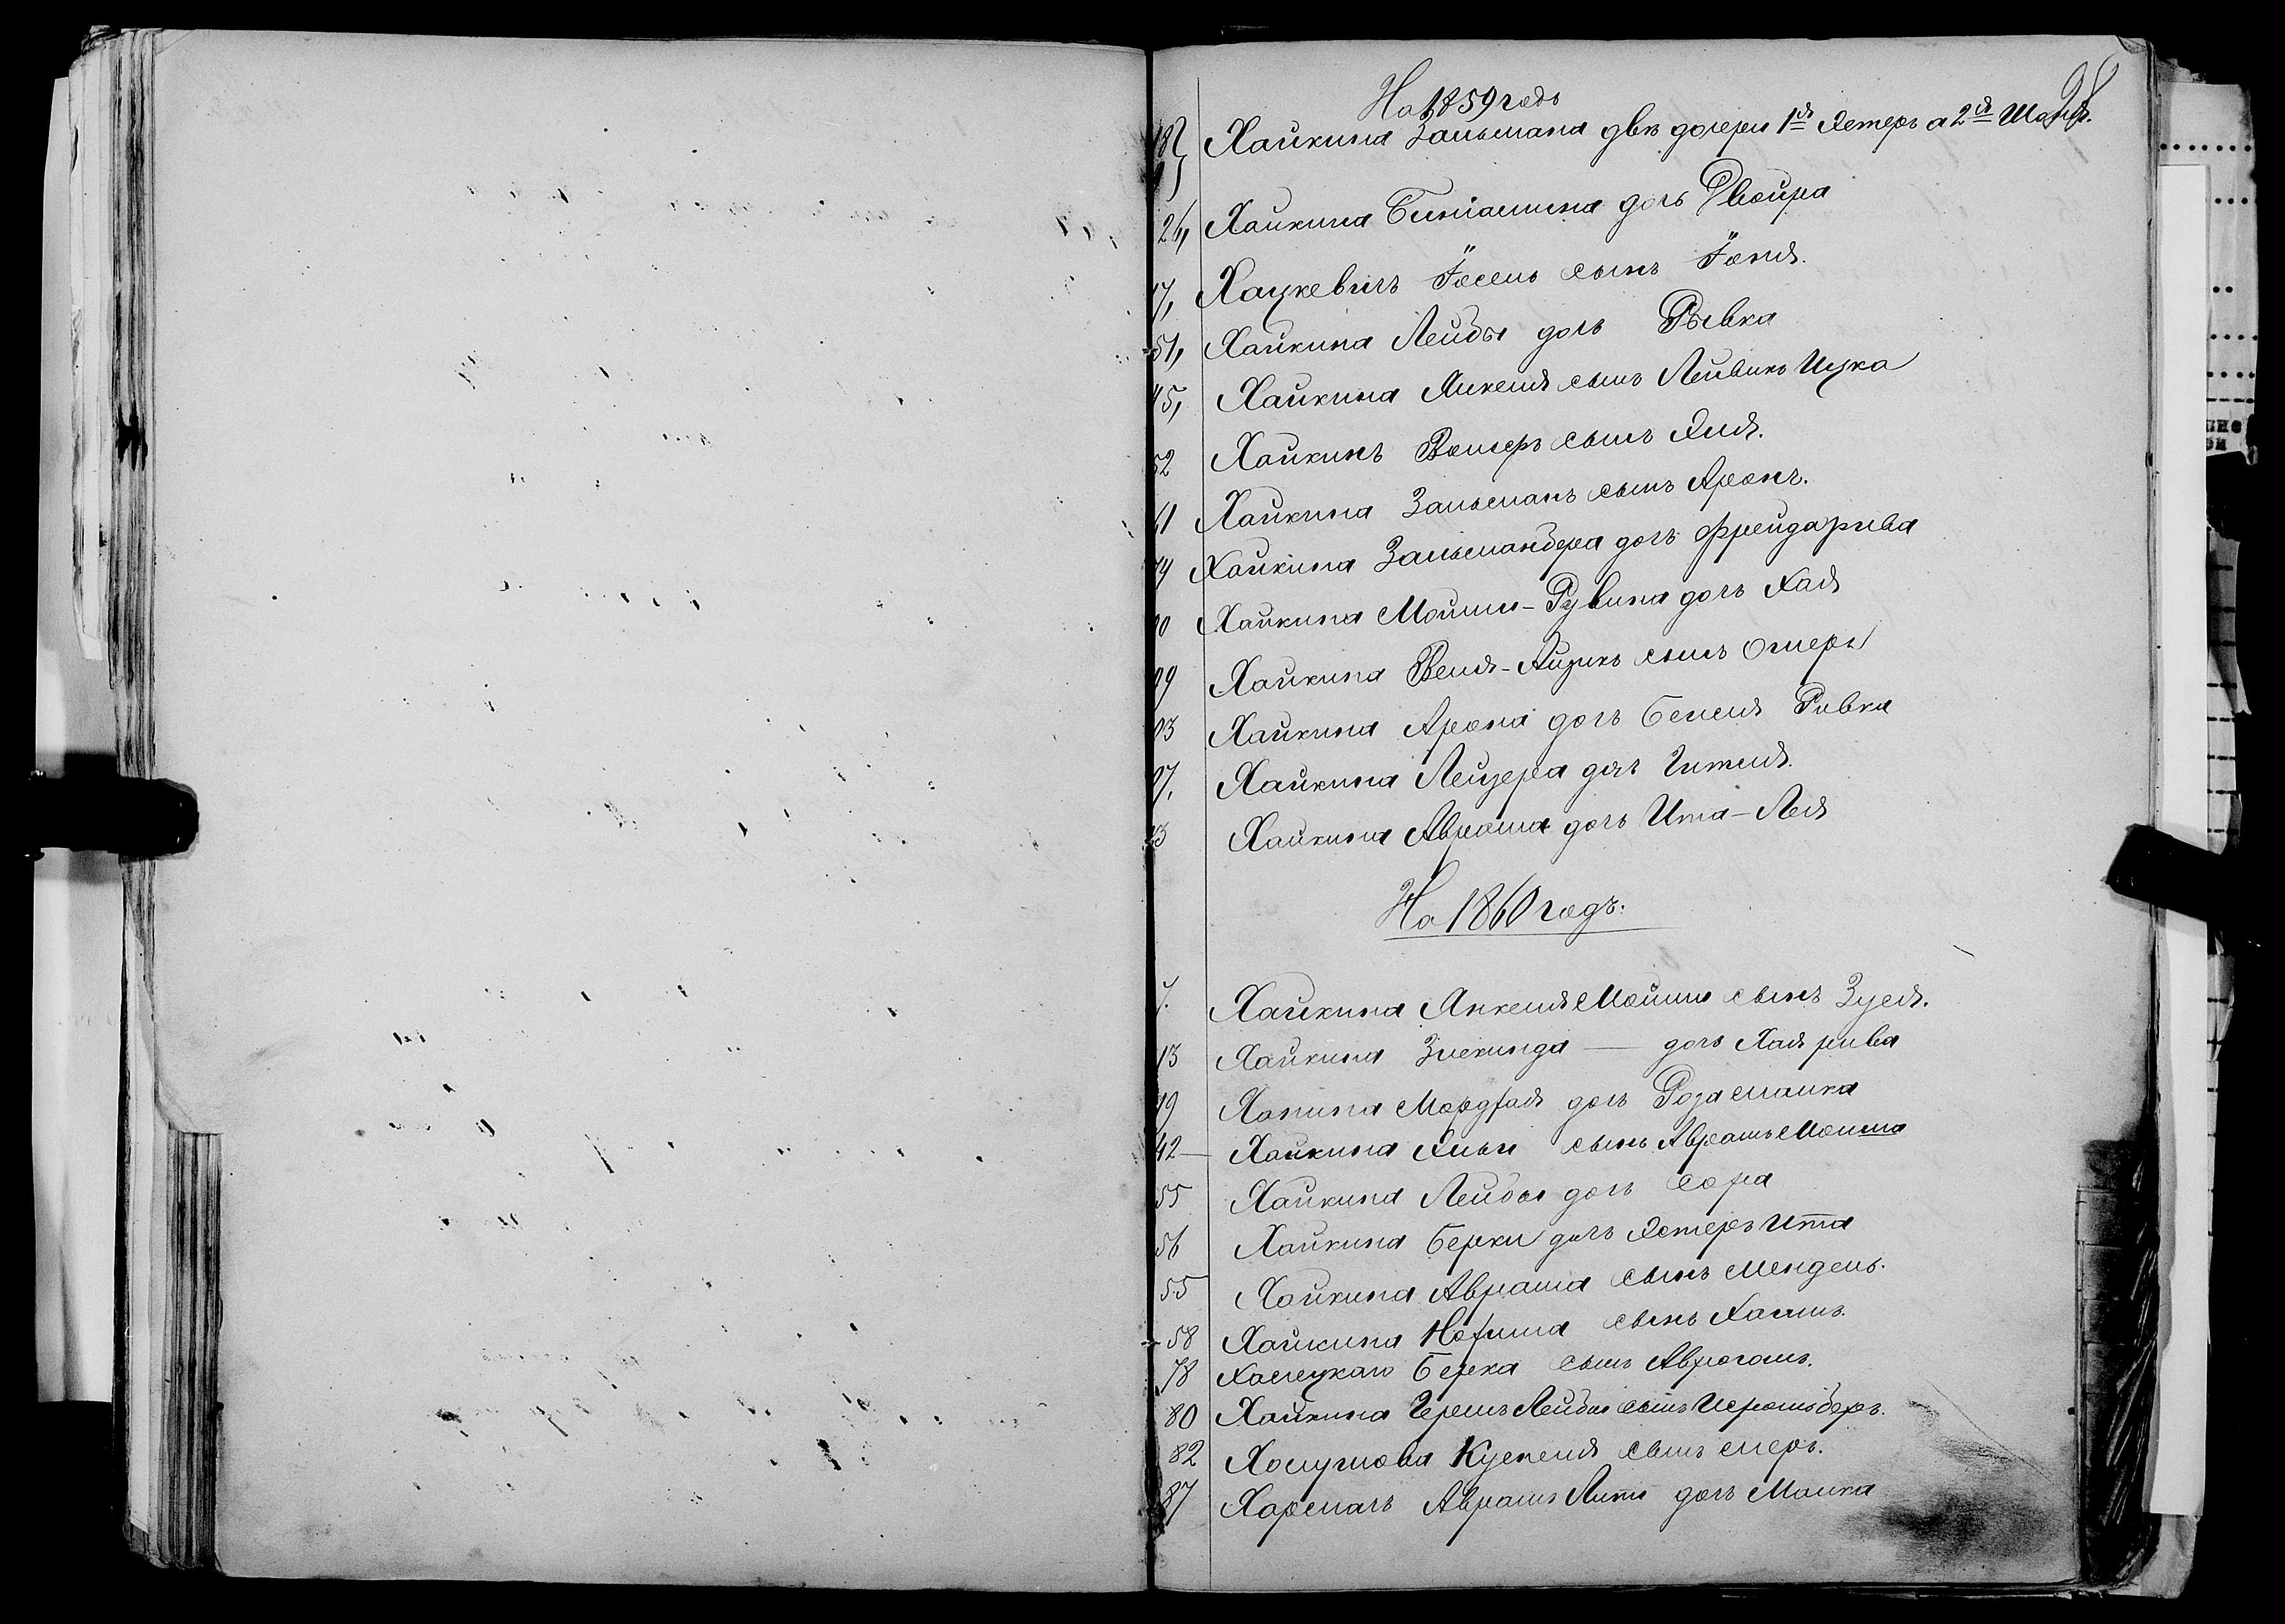 98
На 1859 годъ
18 Хайкина Залмана двѣ дочери 1я Эстеръ а 2я
26, Хайкина Бинiамина дочь Двойра
17, Хацкевичъ Їосель сынъ Їоня.
51, Хайкина Лейбы дочь Рывка
45, Хайкина Янкеля сынъ Лейвикъ Ицка
52 Хайкинъ Вольеръ сынъ Эля.
61 Хайкина Залманъ сынъ Аронъ.
74 Хайкина Залманбера дочь Фрейдарива
90 Хайкина Мовши-Рувина дочь Хая
99 Хайкина Веля-Айзикъ сынъ
03 Хайкина Арона дочь Беиля Ривка
07, Хайкина Лейзера дочь Гитля.
23 Хайкина Аврама дочь Ита-Лея
На 1860 годъ.
7. Хайкина Янкеля Мовши сынъ Зуся.
13 Хайкина Зискинда — дочь Хая рива
19 Ханина Мордхая дочь Роза малка
42 — Хайкина Эльи сынъ Аврамъ Мовша
55 Хайкина Лейбы дочь Сора
56 Хайкина Берки дочь Эстеръ Итта
55 Хайкина Аврама сынъ Мендель.
58 Хайкина Нохима сынъ Хаимъ.
78 Берка сынъ Аврогамъ.
80 Хайкина Гершъ Лейбы сынъ Исромъ беръ.
82 Кусиеля сынъ меръ.
87 Хармачъ Аврамъ дочь Малка